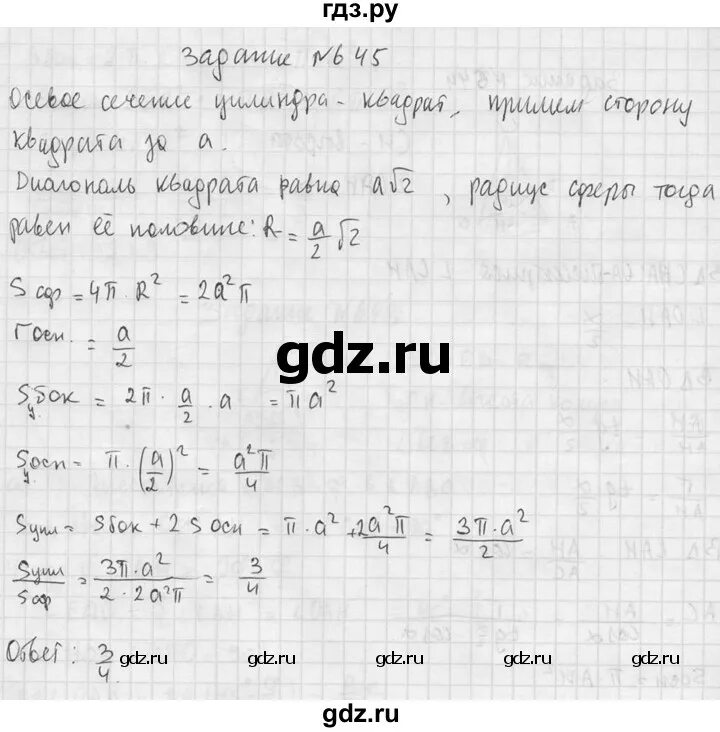 гдз.ру
Задание №645
Осевое сечение цилиндра - квадрат, примем сторону
квадрата за a.
Диагональ квадрата равна a√2, радиус сферы тогда
равен её половине: R = a/2 √2
S сф = 4π · R² = 2a²π
r осн. = a/2
Sц.бок = 2π · a/2 · a = πa²
Sц.осн = π · (a/2)² = a²π/4
Sцил = Sбок + 2 Sосн = π · a² + 2a²π/4 = 3π · a²/2
Sцил/Sсф = 3π · a²/2 · 2a²π = 3/4
Ответ: 3/4.
gdz.ru
gdz.ru gdz.ru gdz.ru gdz.ru gdz.ru
gdz.ru